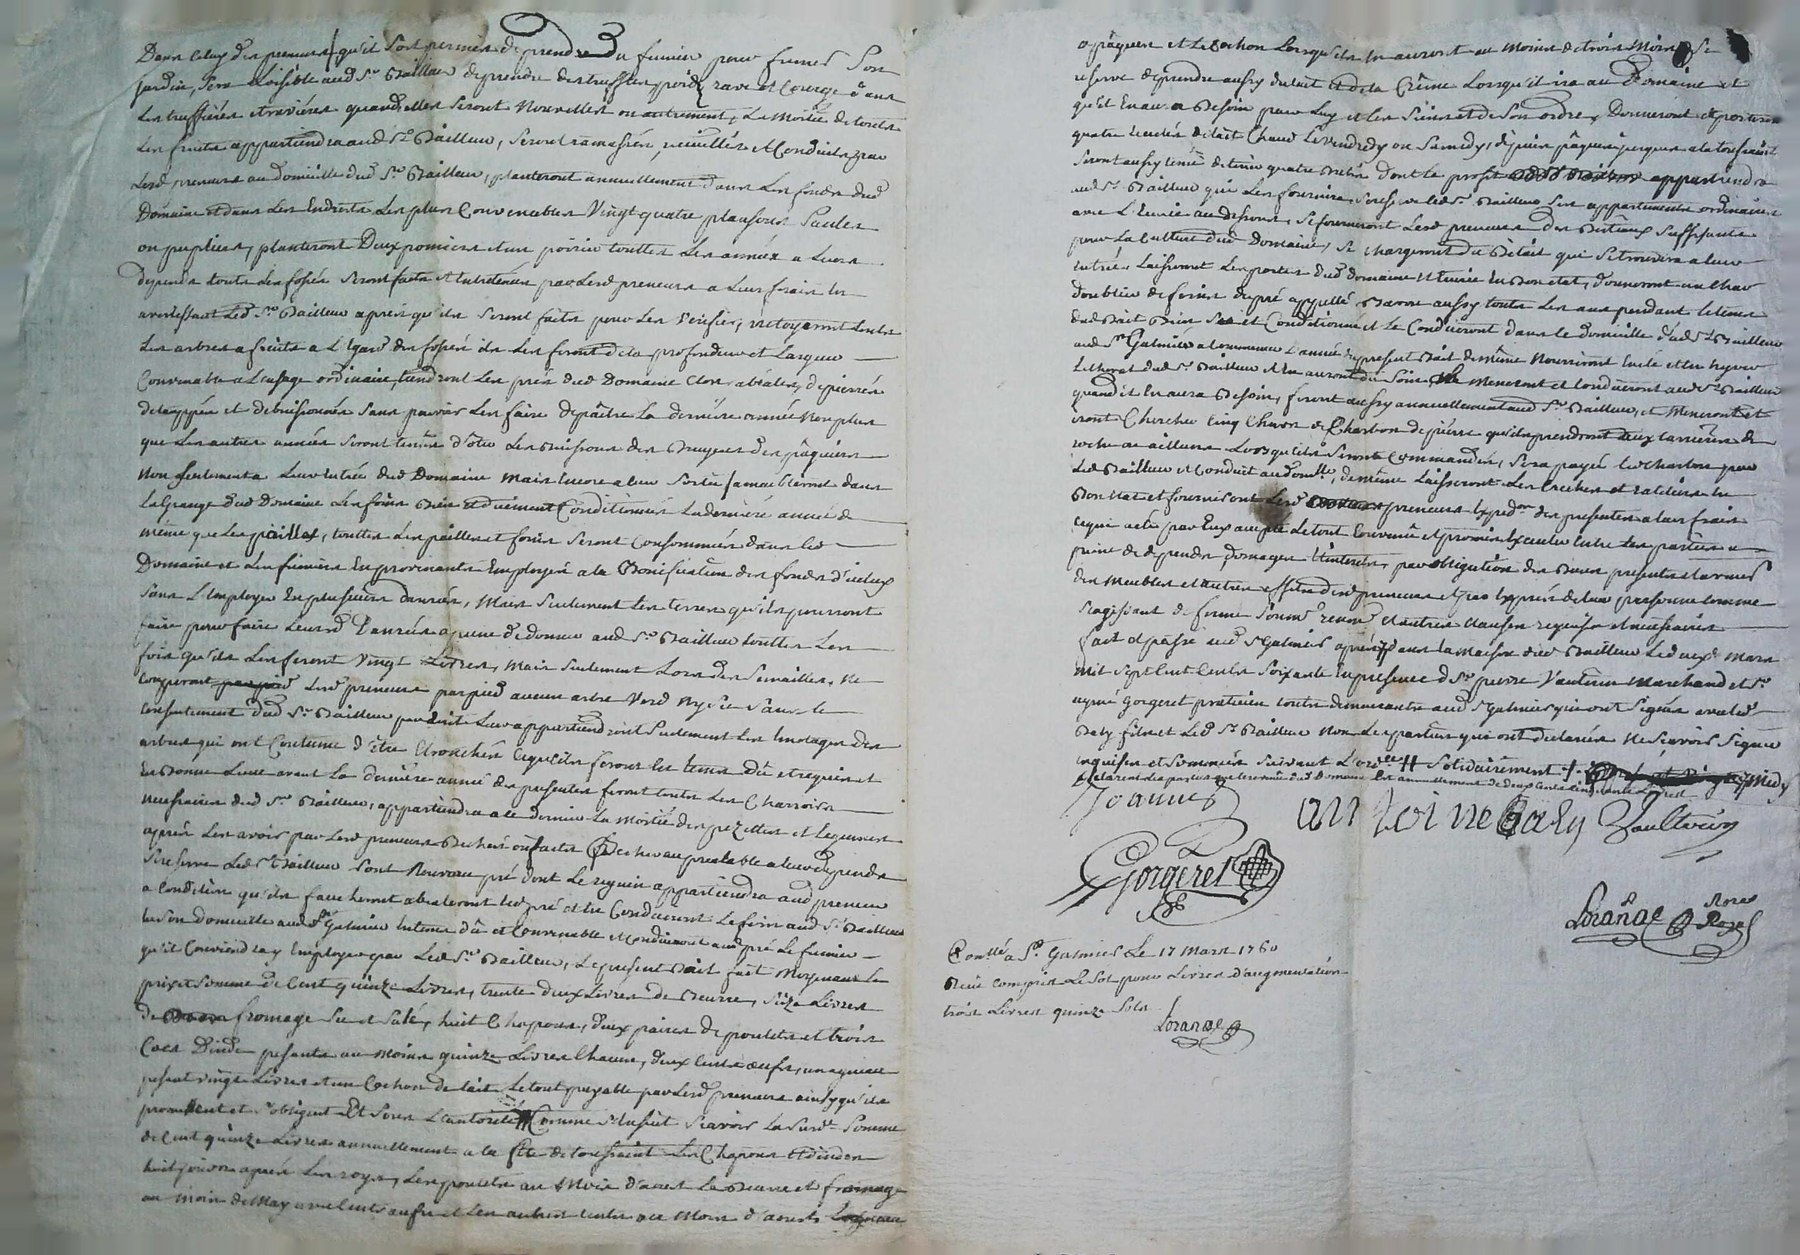 Dans celuy des preneurs qu'il soit permis de prendre du fumier pour fumer son
jardin, sera loisible aud Sr Bailleur de prendre des truffes, poids, rave et courge dans
les truffières et ravières quand elles seront nouvelles ou autrement, la moitié de touts
les fruits appartiendra aud Sr Bailleur, seront ramassés, cueillis et conduits par
lesd preneurs au domicille dud Sr Bailleur, planteront annuellement dans les fonds dud
Domaine et dans les endroits les plus convenables vingt quatre plansons saules
ou peupliers, planteront deux pomiers et un poirier touttes les années a leurs
depends touts les fossés seront faits et entretenus par lesd preneurs a leur frais en
avertissant led Sr Bailleur après qu'ils seront faits pour les vérifier, nétoyeront touts
les arbres a fruits a l'égard des fossés ils les feront de la profondeur et largeur
convenable a l'usage ordinaire, tiendront les prés dud Domaine clos, abéalés, dépierrés
détauppés et débuissonnés sans pouvoir les faire depaitre la dernière année non plus
que les autres années seront tenus d'ôter les buissons des bruyères des pâquiers
non seulement a leur entrée dud Domaine mais encore a leur sortie, amonbleront dans
la Grange dud Domaine les foins bien et duement conditionnés la dernière année de
même que les pailles, touttes les pailles et foins seront consommés dans led
Domaine et les fumiers en provenants employés a la bonification des fonds d'iceluy
sans l'employer en plusieurs danrées, mais seulement les terres qu'ils pourront
faire pour faire leursd danrées a peine de donner aud Sr Bailleur touttes les
fois qu'ils les feront vingt livres, mais seulement lors des semailles, ne
couperont lesd preneurs par pied aucun arbre verd ny sec sans le
consentement dud Sr Bailleur par écrit leur appartiendront seulement les émotages des
arbres qui ont coutume d'être ébranchés ce qu'ils feront en tems dû et requis et
en bonne lune avant la dernière année des presentes feront touts les charrois
necessaires dud Sr Bailleur, appartiendra a ce dernier la moitié des pezettes et legumes
après les avoir par lesd preneurs
se reserve led Sr Bailleur son nouveau pré dont le reguin appartiendra aud preneur
a condition qu'ils faucheront abéaleront led pré et en conduiront le foin aud Sr Bailleur
en son domicille aud St Galmier en tems dû et convenable et conduiront aud pré le fumier
qu'il conviendra y employer par led Sr Bailleur, le présent Bail fait moyenant le
prix et somme de cent quinze livres, trente deux livres de beurre, seize livres
de fromage sec et salé, huit chapons, deux paires de poulets et trois
cocs d'inde pesants au moins quinze livres chacun, deux cents œufs, un agneau
pesant vingt livres et un cochon de lait le tout payable par lesd preneurs ainsy qu'ils
promettent et s'obligent et sous l'autorité comme s'ensuit scavoir la susde somme
de cent quinze livres annuellement a la fête de toussaint les chapons et dindes
huit jours après les roys, les poulets au mois d'aoust le beurre et fromage
au mois de May avec cents œufs et les autres cents au mois d'aoust
a pâques et le cochon lorsqu'ils en auront au moins de trois mois, se
reserve de prendre aussy du lait et de la crême lorsqu'il ira au Domaine et
qu'il en aura besoin pour luy et les siens et de son ordre, donneront et porteront
quatre écuelés de lait chaud le vendredy ou samedy, depuis pâques jusques a la toussaint
seront aussy tenus de tenir quatre brebis dont le profit appartiendra
aud Sr Bailleur qui les fournira, se reserve led Sr Bailleur ses appartements ordinaires
avec l'écurie au dessous, se fourniront lesd preneurs des bestiaux suffisants
pour la culture dud Domaine, se chargeront du bétail qui se trouvera a leur
entrée, laisseront les portes dud domaine et écurie en bon état, donneront un char
de foin du pré appellé Baron aussy touts les ans pendant le tems
dud Bail bien sec et conditionné et le conduiront dans le domicille dud Sr Bailleur
aud St Galmier a commencer l'année du present Bail de même nourriront l'été et l'hyver
le cheval dud Sr Bailleur et en auront du soin le meneront et conduiront aud Sr Bailleur
quand il en aura besoin, feront aussy annuellement aud Sr Bailleur, et meneront et
iront chercher cinq chars de charbon de pierre qu'ils prendront aux carrières de
roche ou ailleurs lorsqu'ils seront commandés, sera payé le charbon par
led Bailleur et conduit au Domlle, de même laisseront les creches et rateliers en
bon état et fourniront lesd preneurs expedon des presentes a leur frais
ce qui a été par eux accepté le tout convenu et promis executer entre les parties a
peine de depends, domages, interets, par obligation des biens presents et avenir
des meubles et autres effets desd preneurs et par exprès de leur personne comme
s'agissant de ferme soumn renonn et autres clauses requises et necessaires
fait et passé aud St Galmier après midy dans la maison dud Bailleur le dix sept Mars
mil sept cent cents soixante en presence de Sr pierre Vauterin Marchand et Sr
aymé Gorgeret praticien touts demeurants aud St Galmier qui ont signés avec led
Baly fils et led Sr Bailleur non les parties qui ont declarés ne scavoir signer
enquises et sommées suivant l'ordce // solidairement
declarent les parties que le revenu dud Domaine est annuellement de deux cents cinquante livres
Joannes
antoine Baly
Vaulterin
Gorgeret
Lorange
Controllé a St Galmier le 17 Mars 1760
Reçu compris le sol pour livres d'augmentation
trois livres quinze sols
Lorange